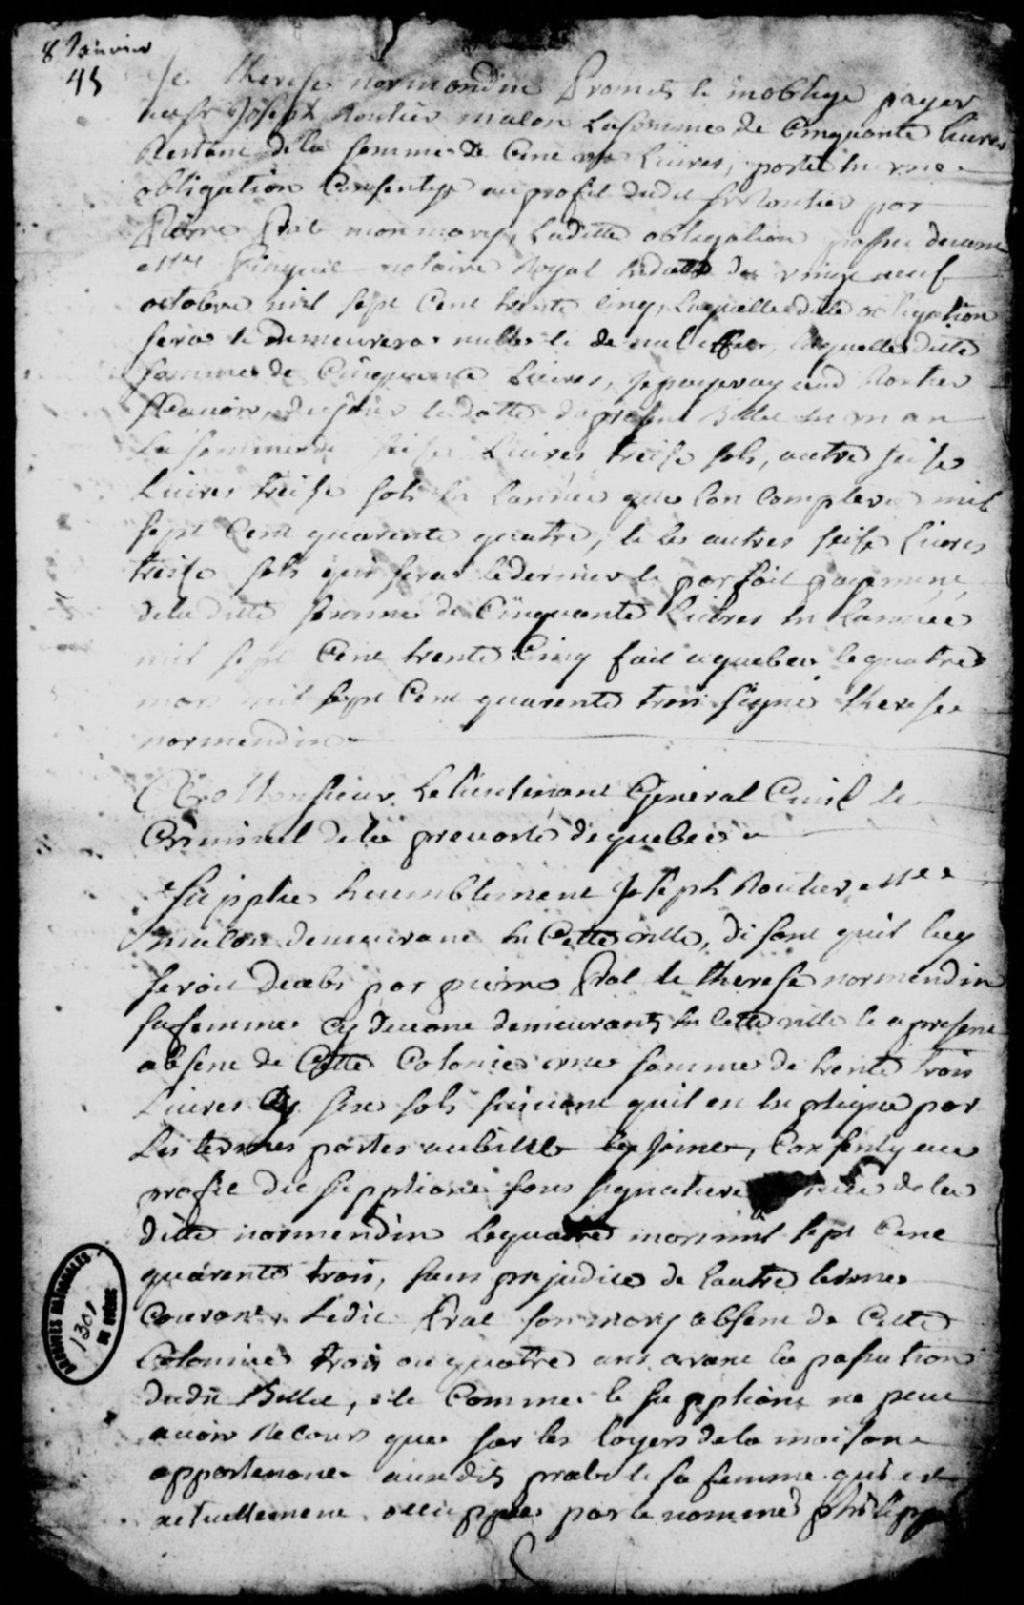 8 Janvier
45
Je therese normandin Promets & m'oblige payer
au Sr Joseph Routier malon La somme de Cinquante livres
Restant de la somme de Cent Livres, porté en une
obligation Consentye au profit dudit Sr Routier par
Pierre Prat mon mary, Laditte obligation passée devant
Me Pinguet notaire Royal en datte du vingt neuf
octobre mil sept Cent trente Cinq, Laquelle ditte obligation
sera & demeurera nulle & de nul effet, laquelle ditte
somme de Cinquante Livres, je payeray aud Routier
Scavoir, du jour la datte du present Billet en un an
La somme de seise Livres treise sols, autre seise
Livres treise sols en L'année que l'on Comptera mil
sept Cent quarente quatre, & les autres seise Livres
treise sols qui sera le dernier & parfait payement
de la ditte somme de Cinquante Livres en L'année
mil sept Cent trente Cinq fait a quebec le quatre
mars mil sept Cent quarente trois signé therese
normendin
A Monsieur Le Lieutenant General Civil &
Criminel de la prevosté de quebec
Supplie humblement Joseph Routier Me
malon demeurant en Cette ville, disant quil luy
seroit deub par pierre Prat & therese normendin
sa femme Cy devant demeurants en Cette ville & a present
absent de Cette Colonie une somme de trente trois
Livres six sols suivant quil est expliqué par
Les termes portés au billet Cy joint, Consenty au
profit du suppliant sous signature de la
ditte normendin Le quatre mars mil sept Cent
quarente trois, sans prejudice de L'autre terme
Courant, Ledit Prat son mary absent de Cette
Colonie trois ou quatre ans avant la passation
dudit Billet, & Comme le suppliant ne peut
avoir Recours que sur les loyers de la maison
appartenante audit prat & sa femme qui est
actuellement occuppée par le nommé philippe
ARCHIVES NATIONALES
1301
DE QUÉBEC